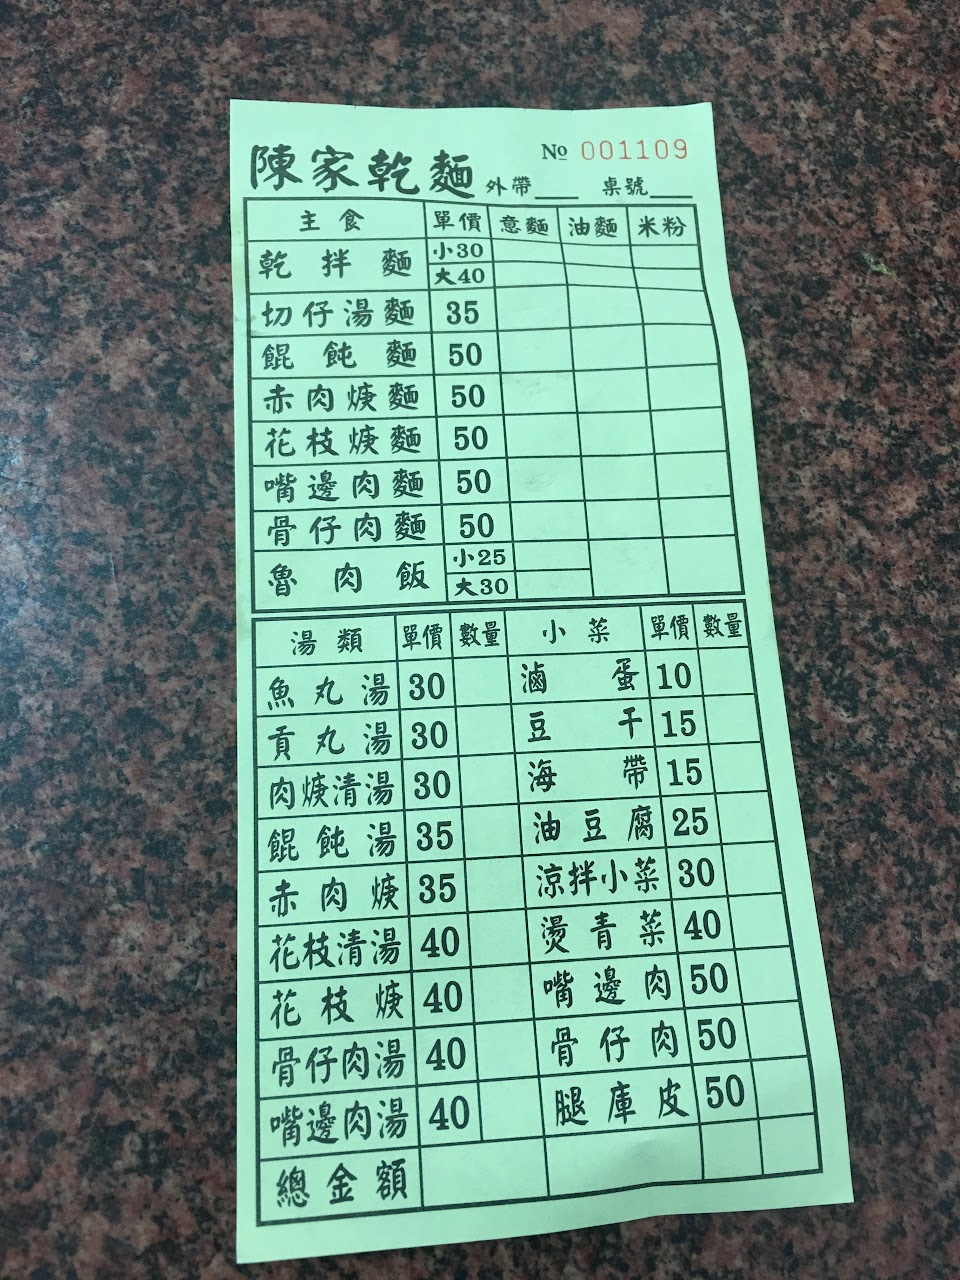 陳家乾麵 外帶 № 001109 桌號
主食 單價 意麵 油麵 米粉
乾拌麵 小30
大40
切仔湯麵 35
餛飩麵 50
赤肉焿麵 50
花枝焿麵 50
嘴邊肉麵 50
骨仔肉麵 50
魯肉飯 小25
大30
湯類 單價 數量 小菜 單價 數量
魚丸湯 30 滷蛋 10
貢丸湯 30 豆干 15
肉焿清湯 30 海帶 15
餛飩湯 35 油豆腐 25
赤肉焿 35 涼拌小菜 30
花枝清湯 40 燙青菜 40
花枝焿 40 嘴邊肉 50
骨仔肉湯 40 骨仔肉 50
嘴邊肉湯 40 腿庫皮 50
總金額